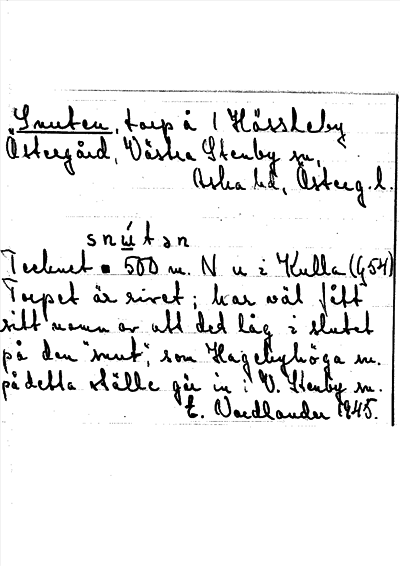 Snuten, torp å 1 Hässleby
Östergård, Västra Stenby sn,
Aska hd, Österg. l.
snútən
Tecknet ▪ 500 m. N u i Kulla (G54)
Torpet är rivet; har väl fått
sitt namn av att det låg i slutet
på den "snut", som Hagebyhöga sn.
på detta ställe går in i V. Stenby sn.
E. Nordlander 1945.